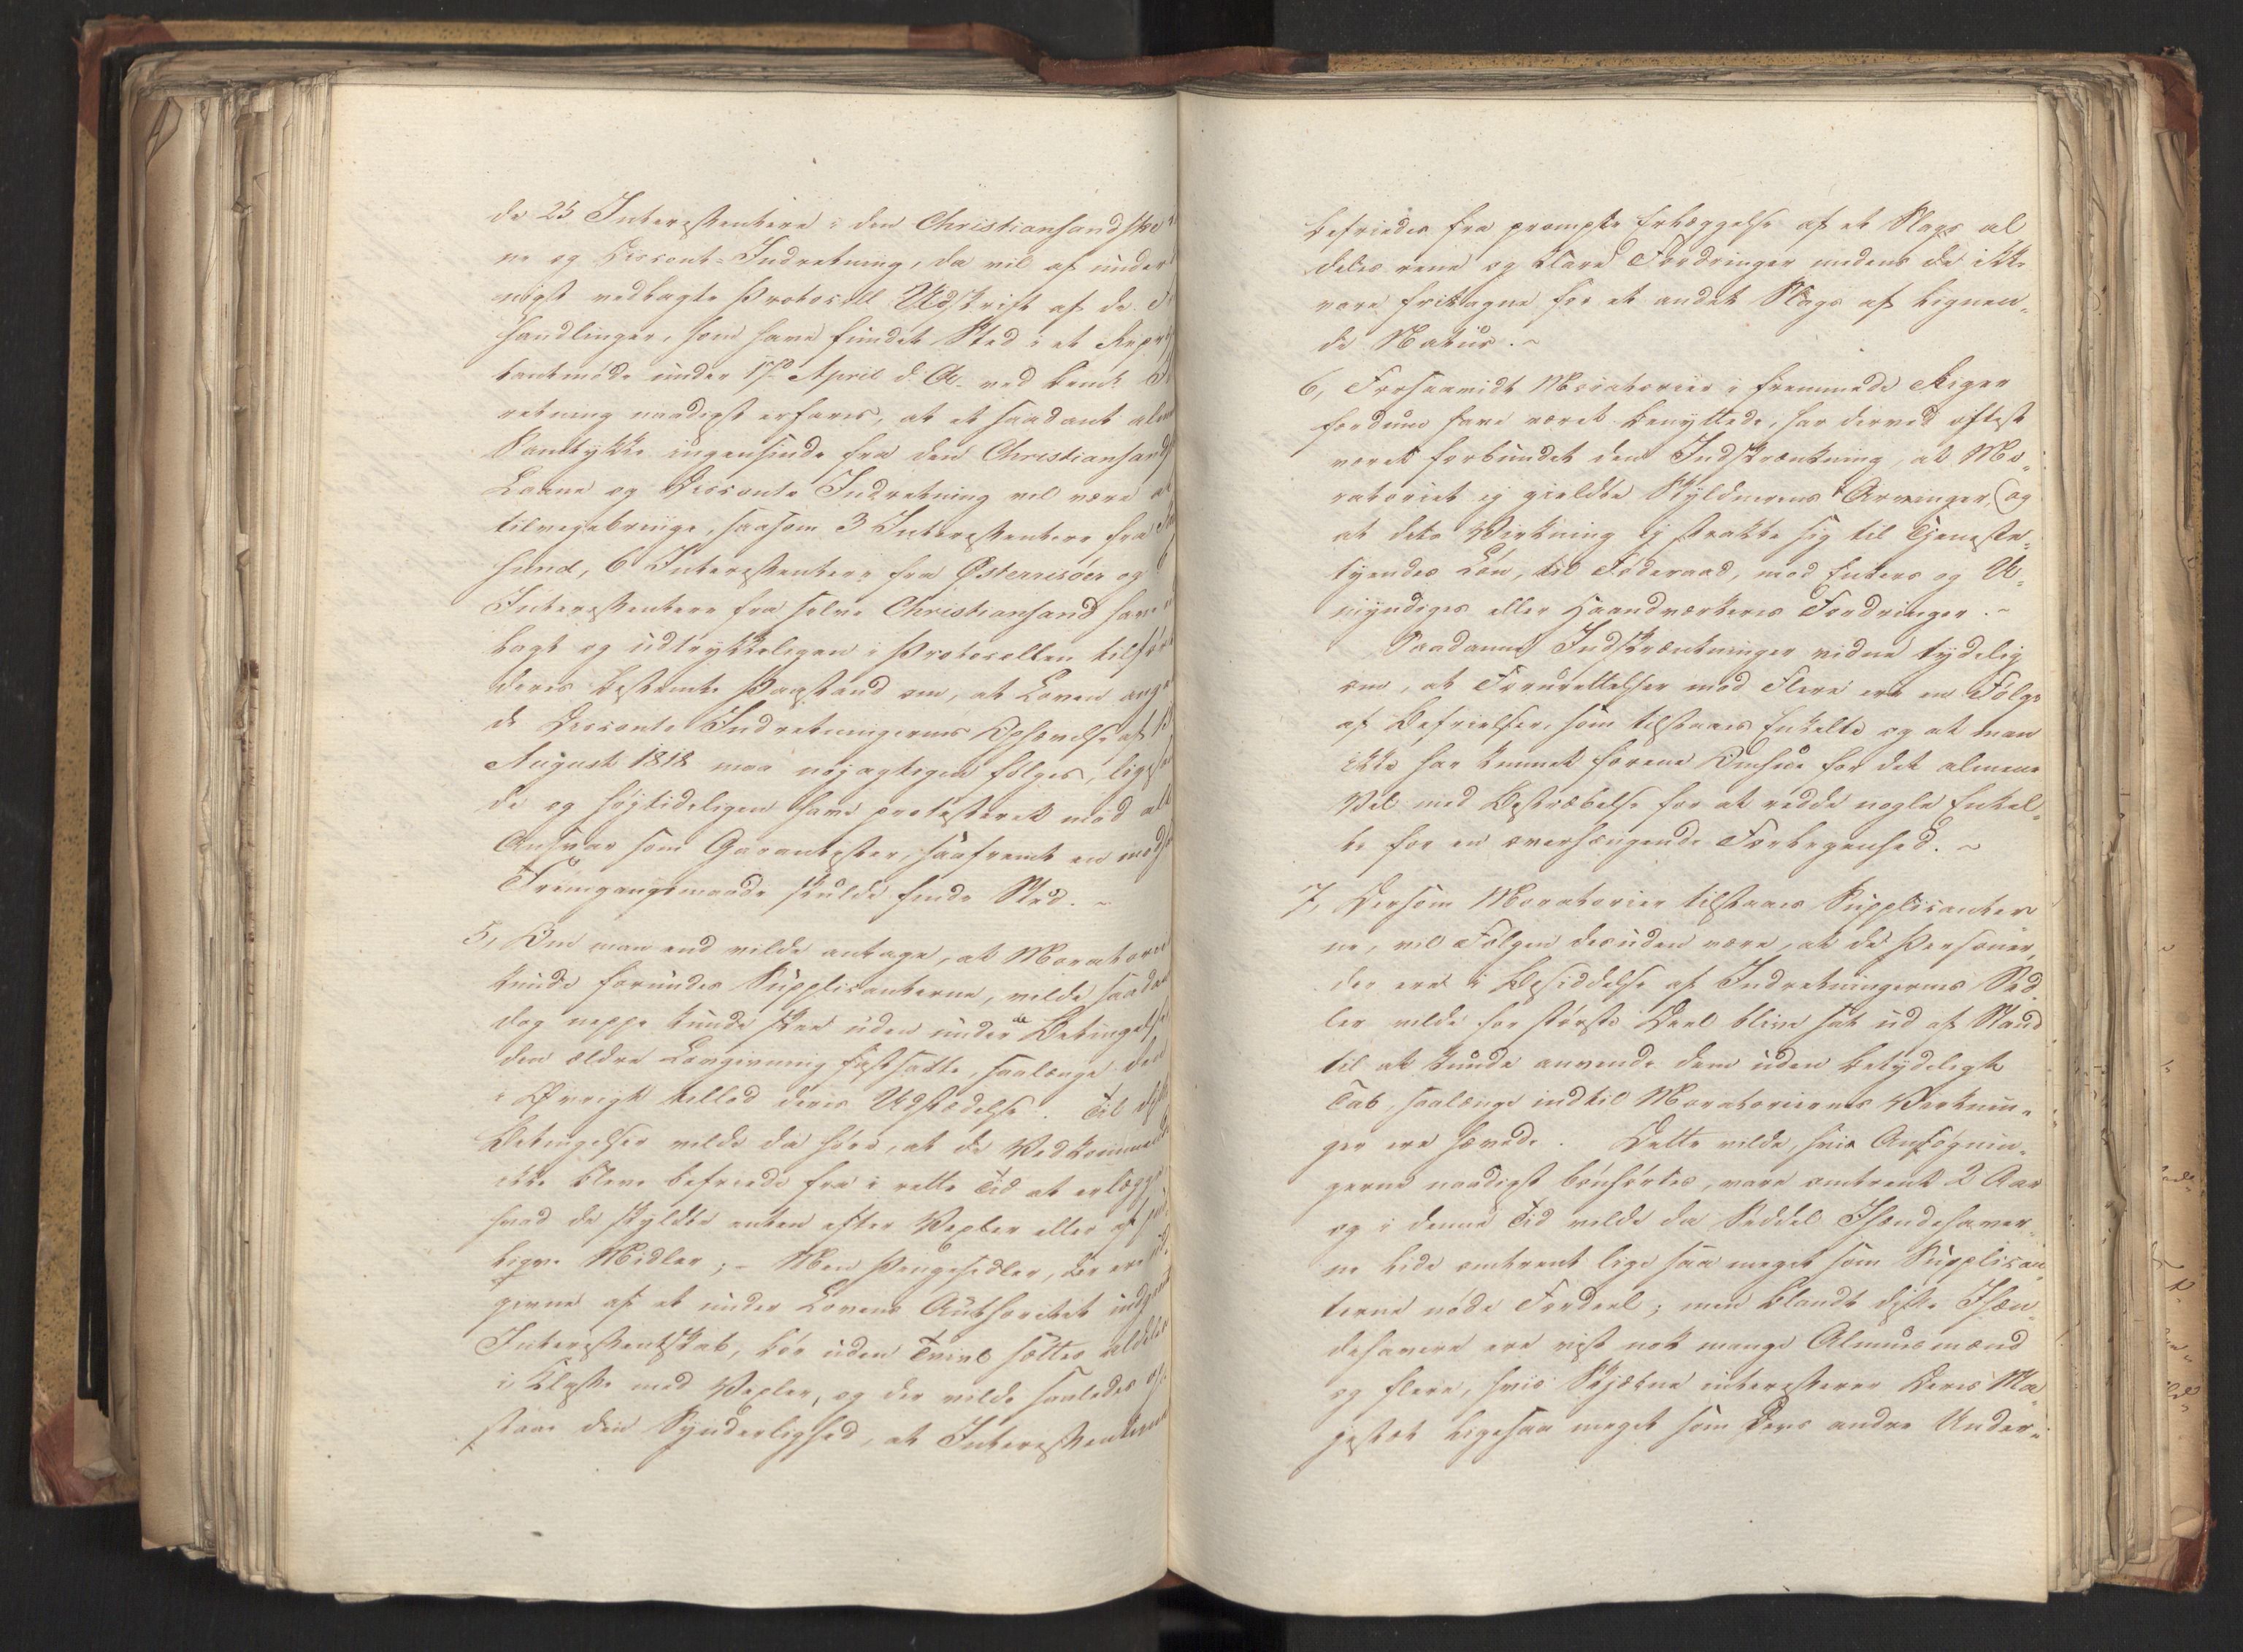 de 25 Interessentere i den Christiansandske
ne og Disconto-Indretning, da vil af under
nigst vedlagte Protocoll Udskrift af de
handlinger, som have fundet Sted i et Repræ
tantmøde under 17de April d: A. ved bemte
retning naadigst erfares, at et saadant
Samtykke ingensinde fra den Christiansands
Laane og Disconto Indretning vil være at
tilvejebringe, saasom 3 Interessentere fra
sund, 6 Interessentere fra Østerrisøer og 6
Interessentere fra selve Christiansand have
lagt og udtrykkeligen i Protocollen tilført
deres bestemte Paastand om, at Loven
de Disconto Indretningernes Ophævelse af 13
August 1818 maa nøjagtigen følges, lige
de og højtideligen have protesteret mod alt
Ansvar som Garantister, saafremt en mods
Fremgangsmaade skulde finde Sted. ~
5, Om man end vilde antage, at Moratorier
kunde forundes Supplicanterne, vilde saadant
dog neppe kunde skee uden under de Betingelser
den ældre Lovgivning fastsatte, saalænge den
i Øvrigt tillod deres Udstædelse. Til disse
Betingelser vilde da høre, at de Vedkommende
ikke bleve befriede fra i rette Tid at erlægge
hvad de skyldte enten efter Vexler eller af
ligne Midler; – Men Pengesedler, der ere ud
givne af et under Lovens Authoritet indgaaet
Interessentskab, bør uden Tvivl sættes aldeles
i Klasse med Vexler, og der vilde saaledes op
staae den Synderlighed, at Interessenterne
befriedes fra prompte Erlæggelse af et Slags al
deles rene og klare Fordringer medens de ikke
vare fritagne for et andet Slags af lignen-
de Natur. ~
6, Forsaavidt Moratorier i fremmede Riger
fordum have været benyttede, har derved oftest
været forbundet den Indskrænkning, at Mo-
ratoriet ej gieldte Skyldnerens Arvinger, og
at dets Virkning ej strakte sig til Tjeneste-
tyendes Løn, til Føderaad, mod Enkers og U-
myndiges eller Haandværkeres Fordringer. ~
Saadanne Indskrænkninger vidne tydelig
om, at Forurettelser mod Flere ere en Følge
af Befrielser, som tilstaaes Enkelte og at man
ikke har kunnet forene Omhue for det almene
Vel med Bestræbelse for at redde nogle Enkel-
te for en overhængende Forlegenhed. ~
7, Dersom Moratorier tilstaaes Supplicanter
ne, vil Følgen desuden være, at de Personer,
der ere i Besiddelse af Indretningernes Sed
ler vilde for største Deel blive sat ud af Stand
til at kunde anvende dem uden betydeligt
Tab, saalænge indtil Moratoriernes Virknin-
ger ere hævede. Dette vilde, hvis Ansøgnin-
gerne naadigst bønhørtes, vare omtrent 2 Aar
og i denne Tid vilde da Seddel Ihændehaver-
ne lide omtrent lige saa meget som Supplican
terne nøde Fordeel; men blandt disse Ihæn-
dehavere ere vist nok mange Almuesmænd
og flere, hvis Skjæbne interesserer Deres Ma
jestæt ligesaa meget som Deres andre Under-